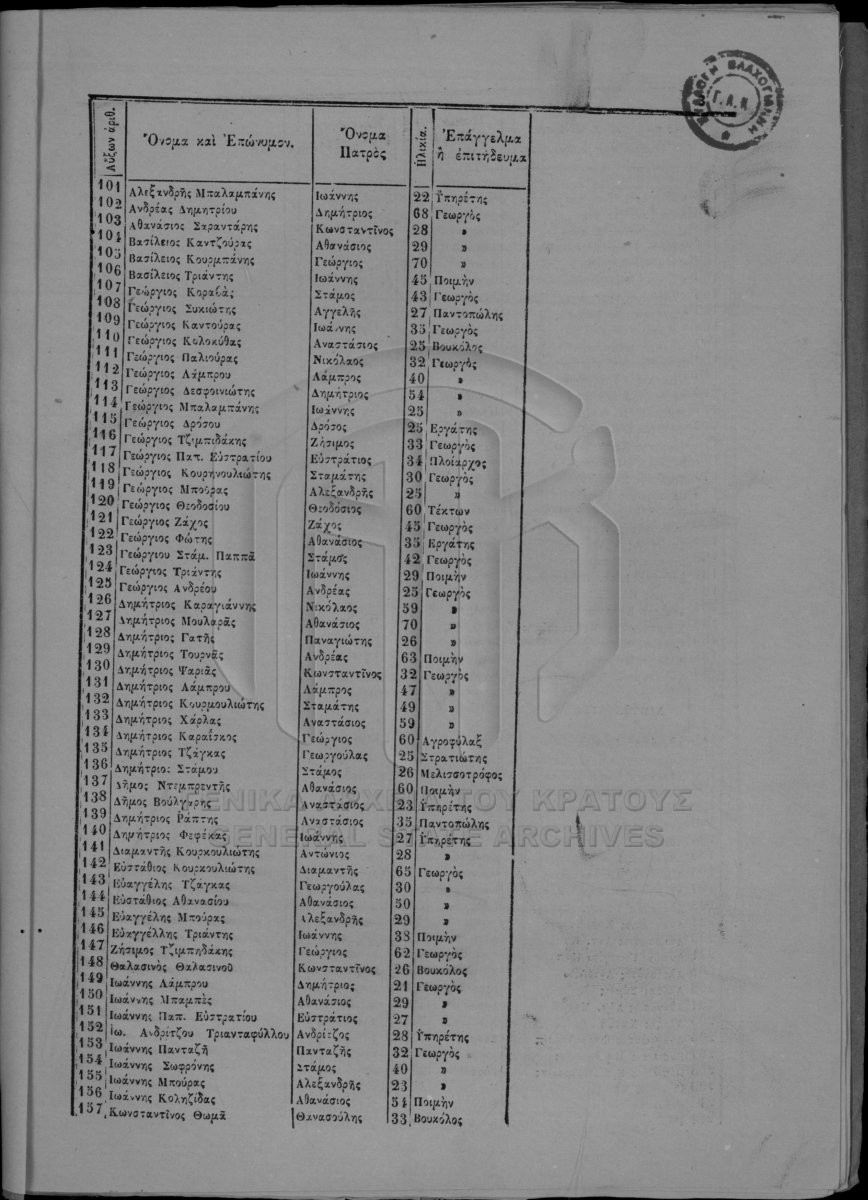 ΣΥΛΛΟΓΗ ΒΛΑΧΟΓΙΑΝΝΗ
Γ.Α.Κ.
Αὔξων ἀριθ. Ὄνομα καὶ Ἐπώνυμον. Ὄνομα Πατρὸς Ἡλικία. Ἐπάγγελμα ἢ ἐπιτήδευμα
101 Ἀλεξανδρῆς Μπαλαμπάνης Ἰωάννης 22 Ὑπηρέτης
102 Ἀνδρέας Δημητρίου Δημήτριος 68 Γεωργὸς
103 Ἀθανάσιος Σαραντάρης Κωνσταντῖνος 28 »
104 Βασίλειος Καντζούρας Ἀθανάσιος 29 »
105 Βασίλειος Κουρμπάνης Γεώργιος 70 »
106 Βασίλειος Τριάντης Ἰωάννης 45 Ποιμὴν
107 Γεώργιος Κοραβᾶς Στάμος 43 Γεωργὸς
108 Γεώργιος Συκιώτης Ἀγγελῆς 27 Παντοπώλης
109 Γεώργιος Καντούρας Ἰωάννης 35 Γεωργὸς
110 Γεώργιος Κολοκύθας Ἀναστάσιος 25 Βουκόλος
111 Γεώργιος Παλιούρας Νικόλαος 32 Γεωργὸς
112 Γεώργιος Λάμπρου Λάμπρος 40 »
113 Γεώργιος Δεσφοινιώτης Δημήτριος 54 »
114 Γεώργιος Μπαλαμπάνης Ἰωάννης 25 »
115 Γεώργιος Δρόσου Δρόσος 25 Ἐργάτης
116 Γεώργιος Τζιμπιδάκης Ζήσιμος 33 Γεωργὸς
117 Γεώργιος Παπ. Εὐστρατίου Εὐστράτιος 34 Πλοίαρχος
118 Γεώργιος Κουρηνουλιώτης Σταμάτης 30 Γεωργὸς
119 Γεώργιος Μποῦρας Ἀλεξανδρῆς 25 »
120 Γεώργιος Θεοδοσίου Θεοδόσιος 60 Τέκτων
121 Γεώργιος Ζάχος Ζάχος 45 Γεωργὸς
122 Γεώργιος Φώτης Ἀθανάσιος 35 Ἐργάτης
123 Γεώργιου Στάμ. Παππᾶ Στάμος 42 Γεωργὸς
124 Γεώργιος Τριάντης Ἰωάννης 29 Ποιμὴν
125 Γεώργιος Ἀνδρέου Ἀνδρέας 25 Γεωργὸς
126 Δημήτριος Καραγιάννης Νικόλαος 59 »
127 Δημήτριος Μουλαρᾶς Ἀθανάσιος 70 »
128 Δημήτριος Γατῆς Παναγιώτης 26 »
129 Δημήτριος Τουρνᾶς Ἀνδρέας 63 Ποιμὴν
130 Δημήτριος Ψαριᾶς Κωνσταντῖνος 32 Γεωργὸς
131 Δημήτριος Λάμπρου Λάμπρος 47 »
132 Δημήτριος Κουρμουλιώτης Σταμάτης 49 »
133 Δημήτριος Χάρλας Ἀναστάσιος 59 »
134 Δημήτριος Καραΐσκος Γεώργιος 60 Ἀγροφύλαξ
135 Δημήτριος Τζάγκας Γεωργούλας 25 Στρατιώτης
136 Δημήτριος Στάμου Στάμος 26 Μελισσοτρόφος
137 Δῆμος Ντεμπρεντῆς Ἀθανάσιος 60 Ποιμὴν
138 Δῆμος Βούλγαρης Ἀναστάσιος 23 Ὑπηρέτης
139 Δημήτριος Ράπτης Ἀναστάσιος 35 Παντοπώλης
140 Δημήτριος Φεφέκας Ἰωάννης 27 Ὑπηρέτης
141 Διαμαντῆς Κουρκουλιώτης Ἀντώνιος 28 »
142 Εὐστάθιος Κουρκουλιώτης Διαμαντῆς 65 Γεωργὸς
143 Εὐαγγέλης Τζάγκας Γεωργούλας 30 »
144 Εὐστάθιος Ἀθανασίου Ἀθανάσιος 50 »
145 Εὐαγγέλης Μπούρας Ἀλεξανδρῆς 29 »
146 Εὐαγγέλλης Τριάντης Ἰωάννης 38 Ποιμὴν
147 Ζήσιμος Τζιμπηδάκης Γεώργιος 62 Γεωργὸς
148 Θαλασινὸς Θαλασινοῦ Κωνσταντῖνος 26 Βουκόλος
149 Ἰωάννης Λάμπρου Δημήτριος 21 Γεωργὸς
150 Ἰωάννης Μπαμπὲς Ἀθανάσιος 29 »
151 Ἰωάννης Παπ. Εὐστρατίου Εὐστράτιος 27 »
152 Ἰω. Ἀνδρίτζου Τριανταφύλλου Ἀνδρίτζος 28 Ὑπηρέτης
153 Ἰωάννης Πανταζῆ Πανταζῆς 32 Γεωργὸς
154 Ἰωάννης Σωφρόνης Στάμος 40 »
155 Ἰωάννης Μπούρας Ἀλεξανδρῆς 23 »
156 Ἰωάννης Κοληζίδας Ἀθανάσιος 54 Ποιμὴν
157 Κωνσταντῖνος Θωμᾶ Θανασούλης 33 Βουκόλος
ΓΕΝΙΚΑ ΑΡΧΕΙΑ ΤΟΥ ΚΡΑΤΟΥΣ
GENERAL STATE ARCHIVES